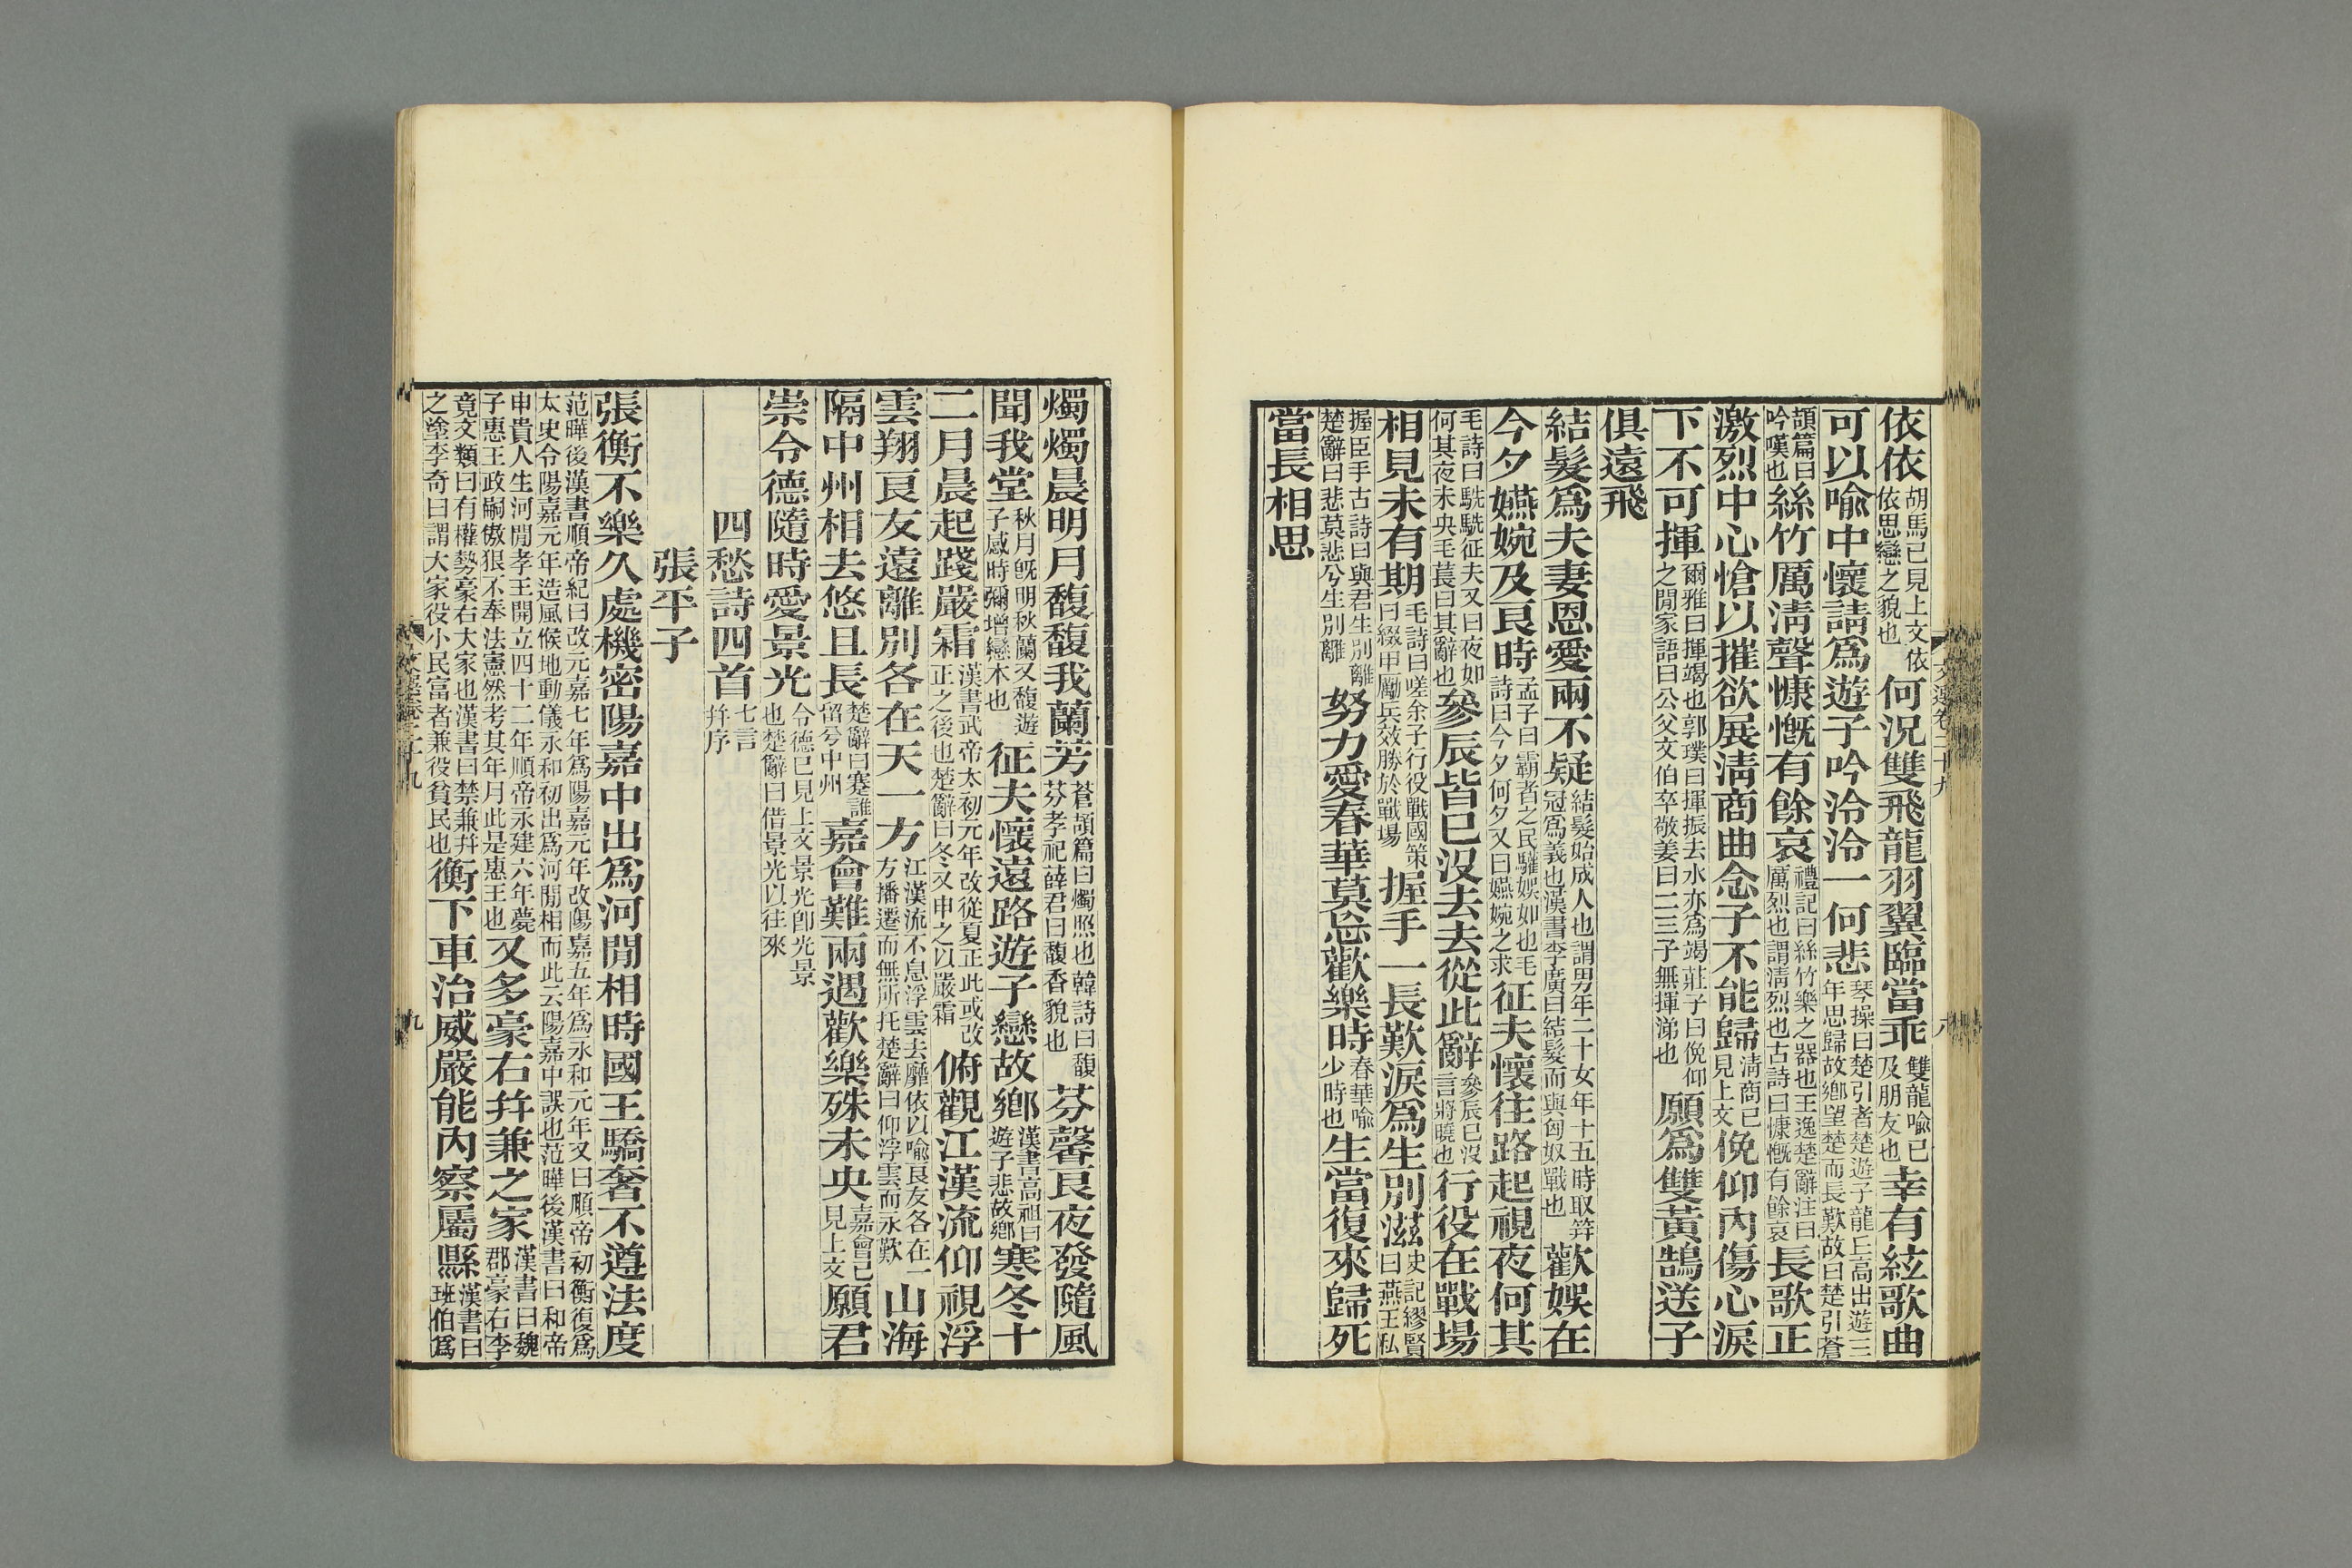 依依胡馬已見上文依依思戀之貌也何況雙飛龍羽翼臨當乖雙龍喩已及朋友也幸有絃歌曲
可以喻中懷請爲遊子吟泠泠一何悲琴操曰楚引者楚遊子龍丘高出遊三年思歸故鄉望楚而長歎故曰楚引蒼
頡篇曰吟嘆也絲竹厲淸聲慷慨有餘哀禮記曰絲竹樂之器也王逸楚辭注曰厲烈也謂淸烈也古詩曰慷慨有餘哀長歌正
激烈中心愴以摧欲展淸商曲念子不能歸淸商已見上文俛仰內傷心淚
下不可揮爾雅曰揮竭也郭璞曰揮振去水亦爲竭莊子曰俛仰之閒家語曰公父文伯卒敬姜曰二三子無揮涕也願爲雙黃鵠送子
俱遠飛
結髮爲夫妻恩愛兩不疑結髮始成人也謂男年二十女年十五時取筓冠爲義也漢書李廣曰結髮而與匈奴戰也歡娛在
今夕嬿婉及良時孟子曰霸者之民驩娛如也毛詩曰今夕何夕又曰嬿婉之求征夫懷往路起視夜何其
毛詩曰駪駪征夫又曰夜如何其夜未央毛萇曰其辭也參辰皆已沒去去從此辭參辰已沒言將曉也行役在戰場
相見未有期毛詩曰嗟余子行役戰國策曰綴甲勵兵效勝於戰場握手一長歎淚爲生別滋史記繆賢曰燕王私
握臣手古詩曰與君生別離楚辭曰悲莫悲兮生別離努力愛春華莫忘歡樂時春華喩少時也生當復來歸死
當長相思
文選卷二十九 八
燭燭晨明月馥馥我蘭芳蒼頡篇曰燭照也韓詩曰馥芬孝祀薛君曰馥香貌也芬馨良夜發隨風
聞我堂秋月旣明秋蘭又馥遊子感時彌增戀本也征夫懷遠路遊子戀故鄉漢書高祖曰遊子悲故鄉寒冬十
二月晨起踐嚴霜漢書武帝太初元年改從夏正此或改正之後也楚辭曰冬又申之以嚴霜俯觀江漢流仰視浮
雲翔良友遠離別各在天一方江漢流不息浮雲去靡依以喩良友各在一方播遷而無所托楚辭曰仰浮雲而永歎山海
隔中州相去悠且長楚辭曰蹇誰留兮中州嘉會難兩遇歡樂殊未央嘉會已見上文願君
崇令德隨時愛景光令德已見上文景光卽光景也楚辭曰借景光以往來
四愁詩四首七言幷序
張平子
張衡不樂久處機密陽嘉中出爲河閒相時國王驕奢不遵法度
范曄後漢書順帝紀曰改元嘉七年爲陽嘉元年改陽嘉五年爲永和元年又曰順帝初衡復爲太史令陽嘉元年造風候地動儀永和初出爲河閒相而此云陽嘉中誤也范曄後漢書曰和帝
申貴人生河閒孝王開立四十二年順帝永建六年薨子惠王政嗣傲狠不奉法憲然考其年月此是惠王也又多豪右幷兼之家漢書曰魏郡豪右李
竟文類曰有權勢豪右大家也漢書曰禁兼幷之塗李奇曰謂大家役小民富者兼役貧民也衡下車治威嚴能內察屬縣漢書曰班伯爲
文選卷二十九 九